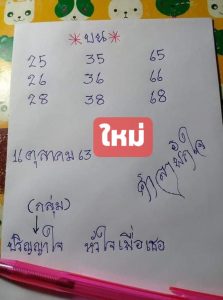 *บน*
25 35 65
26 36 66
28 38 68
ใหม่
16 ตุลาคม 63
ศาลาพักใจ
(กลุ่ม)
ปริญญาใจ หัวใจเมื่อเธอ